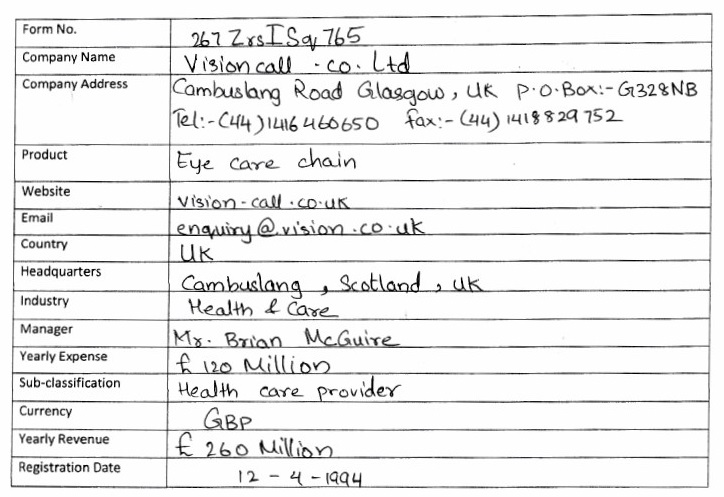 Form No. 267 ZrsISq765
Company Name Vision call - co. Ltd
Company Address Cambuslang Road Glasgow, UK P.O.Box:- G328NB
Tel:- (44)1416460650 fax:- (44) 1418829752
Product Eye care chain
Website vision-call.co.uk
Email enquiry@.vision.co.uk
Country UK
Headquarters Cambuslang, Scotland, UK
Industry Health & Care
Manager Mr. Brian McGuire
Yearly Expense £ 120 Million
Sub-classification Health care provider
Currency GBP
Yearly Revenue £ 260 Million
Registration Date 12 - 4 - 1994